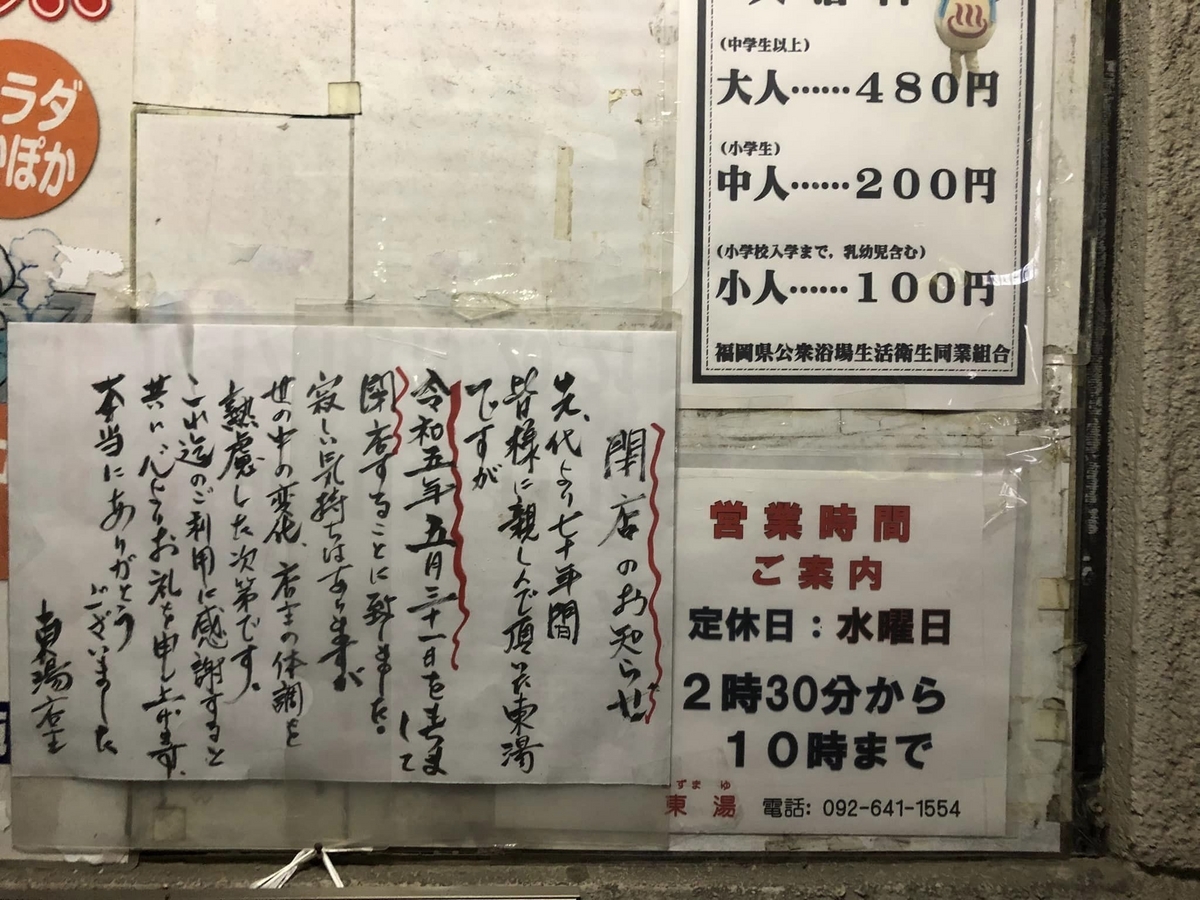 ラダ
ぽか
(中学生以上)
大人……480円
(小学生)
中人……200円
(小学校入学まで，乳幼児含む)
小人……100円
福岡県公衆浴場生活衛生同業組合
閉店のお知らせ
先代より七十年間
皆様に親しんで頂いた東湯
ですが
令和五年五月三十一日をもちまして
閉店することに致しました。
寂しい気持ちはありますが
世の中の変化、店主の体調を
熱慮した次第です。
これ迄のご利用に感謝すると
共に心よりお礼を申し上げます。
本当にありがとう
ございました
東湯店主
営業時間
ご案内
定休日：水曜日
2時30分から
10時まで
ずまゆ
東湯 電話: 092-641-1554